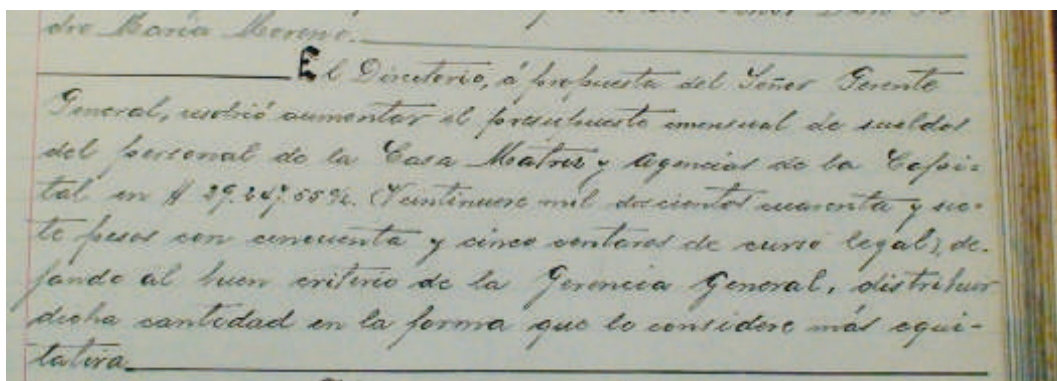 dro María Moreno.
El Directorio, á propuesta del Señor Gerente
General, resolvió aumentar el presupuesto mensual de sueldos
del personal de la Casa Matriz y Agencias de la Capi-
tal en $ 29.247.55 %. (Veintinueve mil doscientos cuarenta y sie-
te pesos con cincuenta y cinco centavos de curso legal), de-
jando al buen criterio de la Gerencia General, distribuir
dicha cantidad en la forma que lo considere más equi-
tativa.